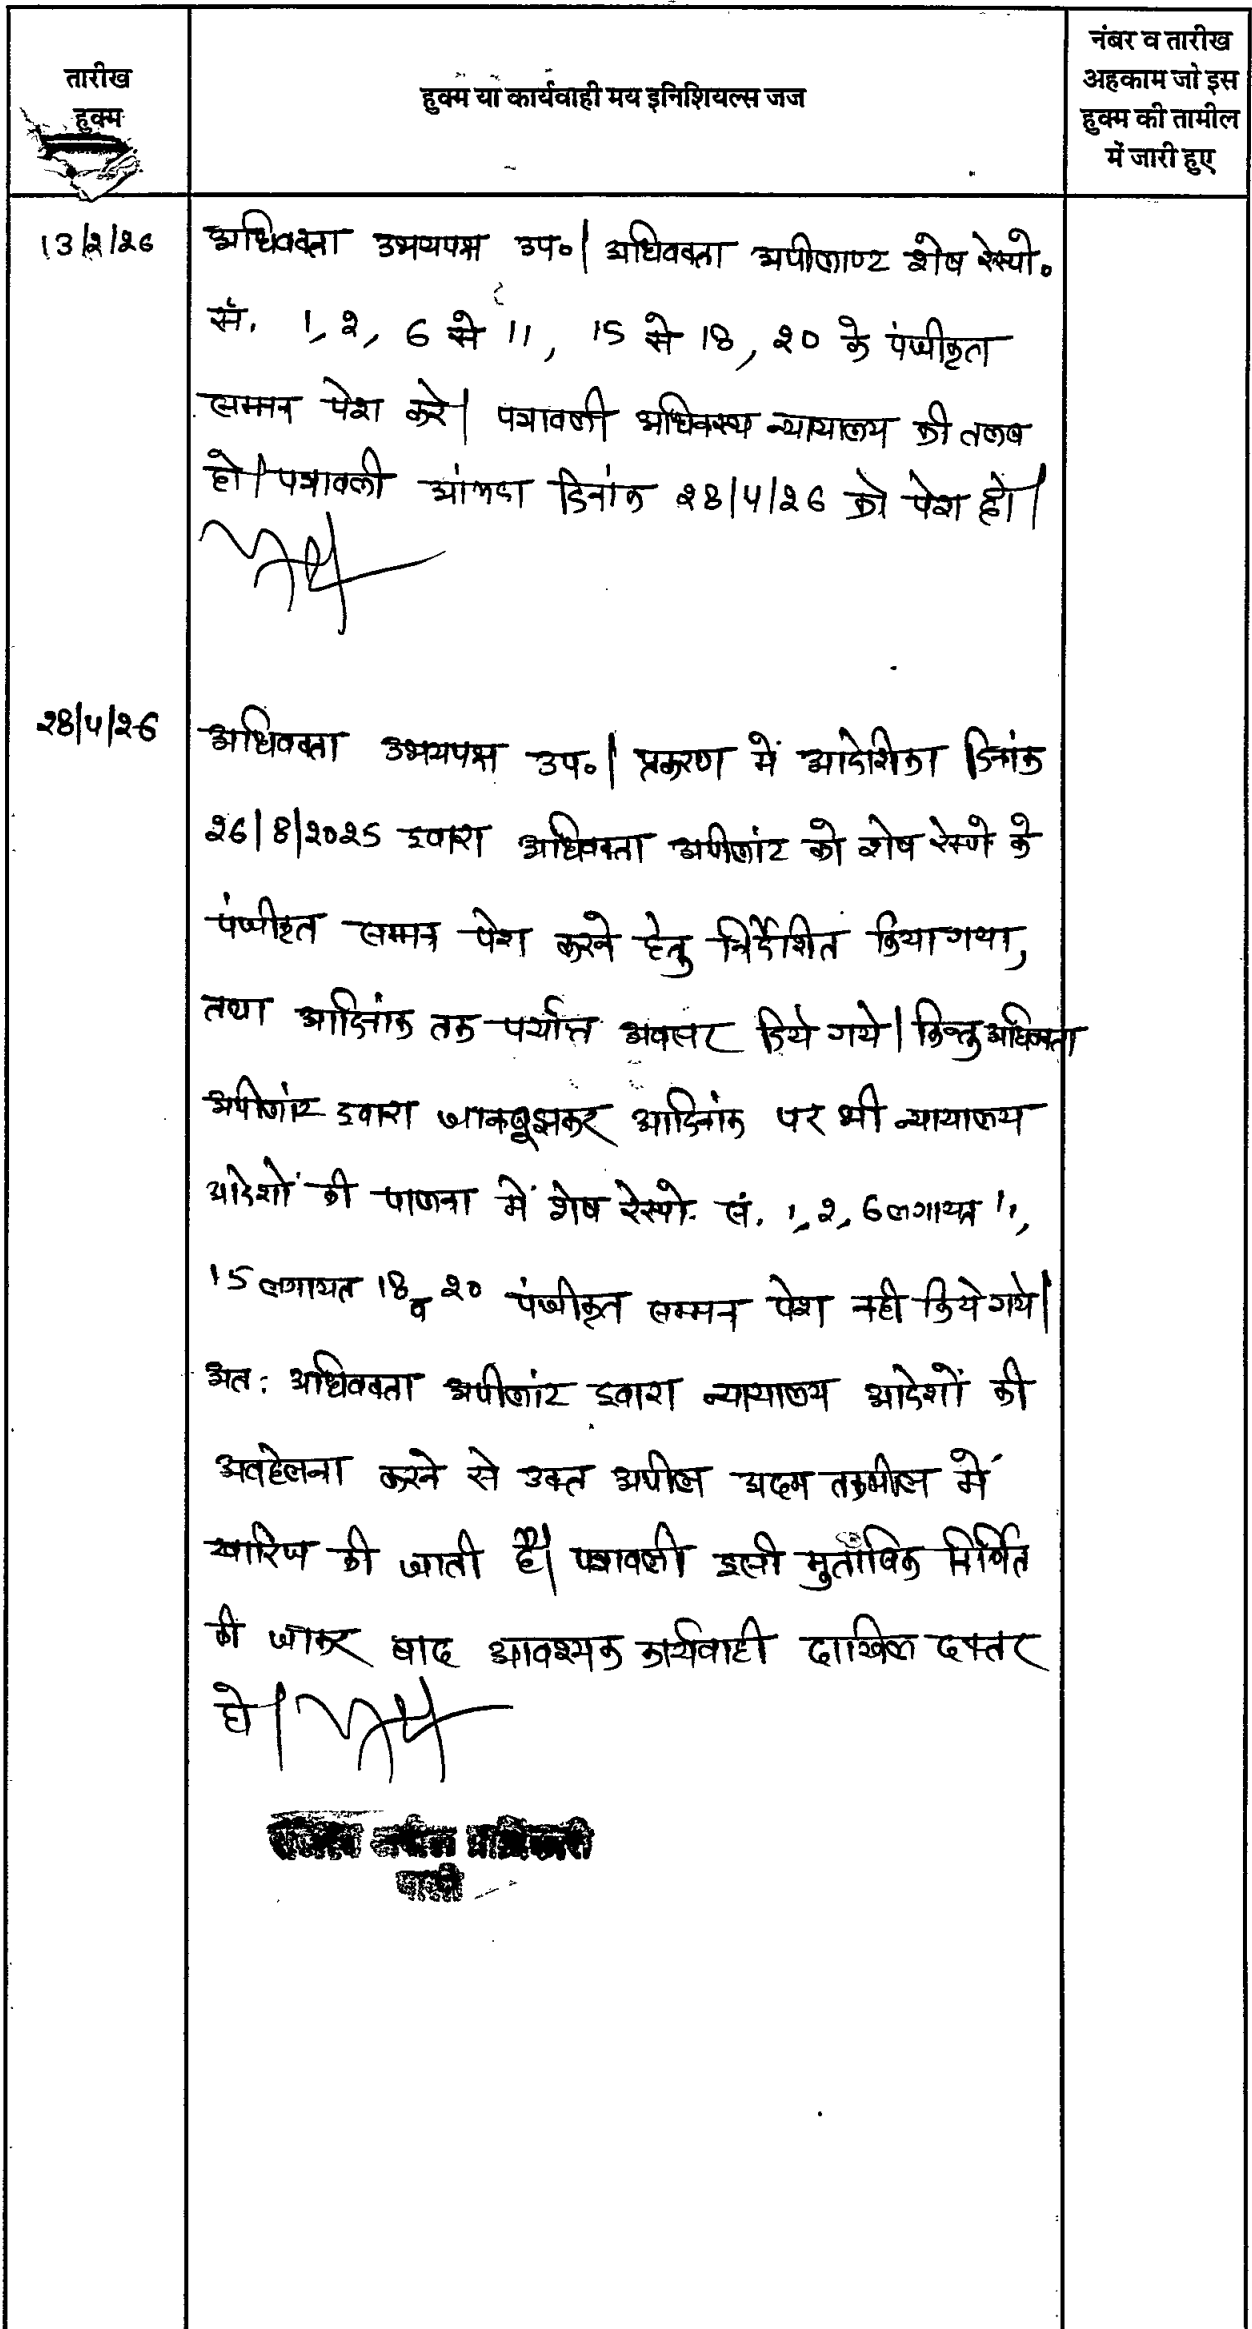 तारीख
हुक्म
हुक्म या कार्यवाही मय इनिशियल्स जज
नंबर व तारीख
अहकाम जो इस
हुक्म की तामील
में जारी हुए
13/2/26
अधिवक्ता उभयपक्ष उप०। अधिवक्ता अपीलाण्ट शेष रेस्पो०
सं. 1, 2, 6 से 11, 15 से 18, 20 के पंजीकृत
सम्मन पेश करे। पत्रावली अधिनस्थ न्यायालय की तलब
हो। पत्रावली आंइदा दिनांक 28/4/26 को पेश हो।
28/4/26
अधिवक्ता उभयपक्ष उप०। प्रकरण में आदेशिका दिनांक
26/8/2025 द्वारा अधिवक्ता अपीलांट को शेष रेस्पो के
पंजीकृत सम्मन पेश करने हेतु निर्देशित किया गया,
तथा आदिनांक तक पर्याप्त अवसर दिये गये। किन्तु अधिवक्ता
अपीलांट द्वारा जानबूझकर आदिनांक पर भी न्यायालय
आदेशों की पालना में शेष रेस्पो. सं. 1, 2, 6 लगायत 11,
15 लगायत 18 व 20 पंजीकृत सम्मन पेश नही किये गये।
अत: अधिवक्ता अपीलांट द्वारा न्यायालय आदेशों की
अवहेलना करने से उक्त अपील अदम तकमील में
खारिज की जाती है। पत्रावली इसी मुताबिक निर्णित
की जाकर बाद आवश्यक कार्यवाही दाखिल दफ्तर
हो।
राजस्व अपील प्राधिकारी
पाली